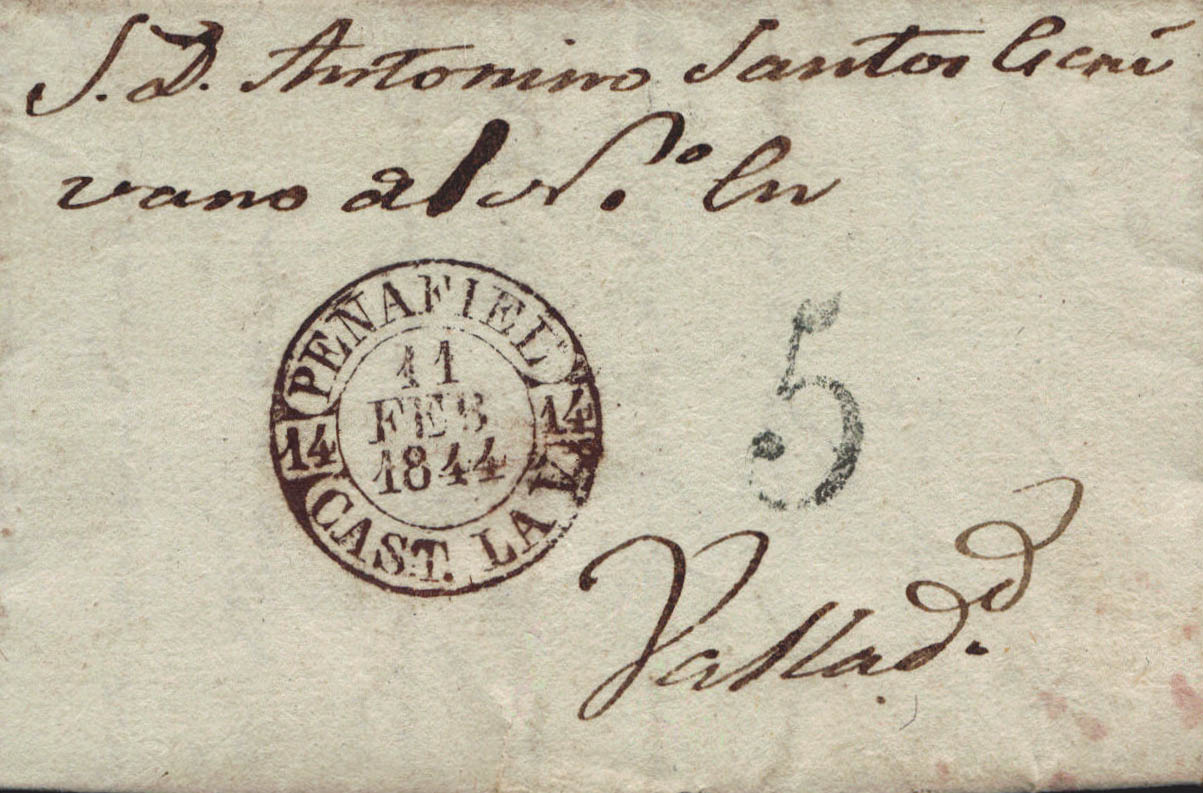 S. D. Antonino Santos Escri
vano del N.º En
PENAFIEL
11
FEB
1844
14
14
CAST. LA V.
5
Vallad.d